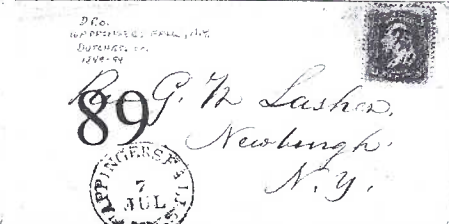 D.P.O.
WAPPINGERS FALLS, N.Y.
DUTCHESS CO.
Rev G. N Lasher,
89
Newburgh
N.Y.
WAPPINGERS FALLS
7
JUL